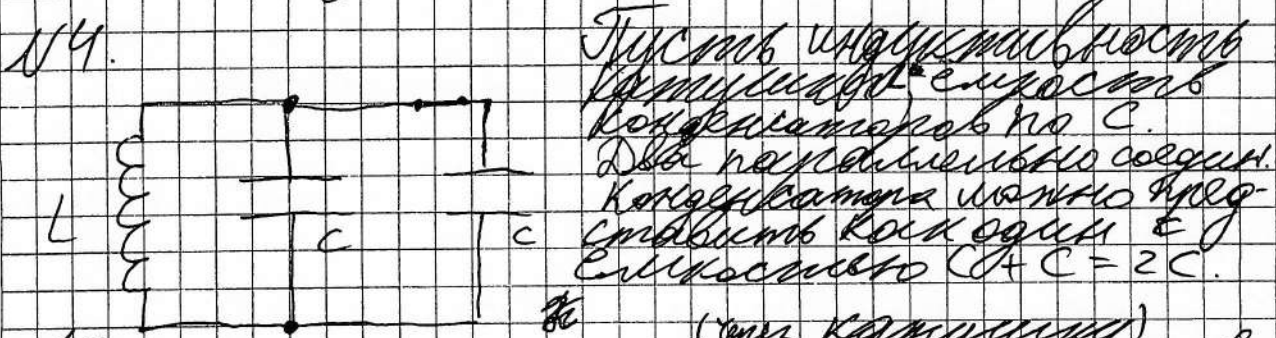 №4.
Пусть индуктивность
катушки L, емкость
конденсаторов по C.
Два параллельно соедин.
конденсатора можно пред-
ставить как один с
емкостью C + C = 2C.
L
C
C
(через катушку)